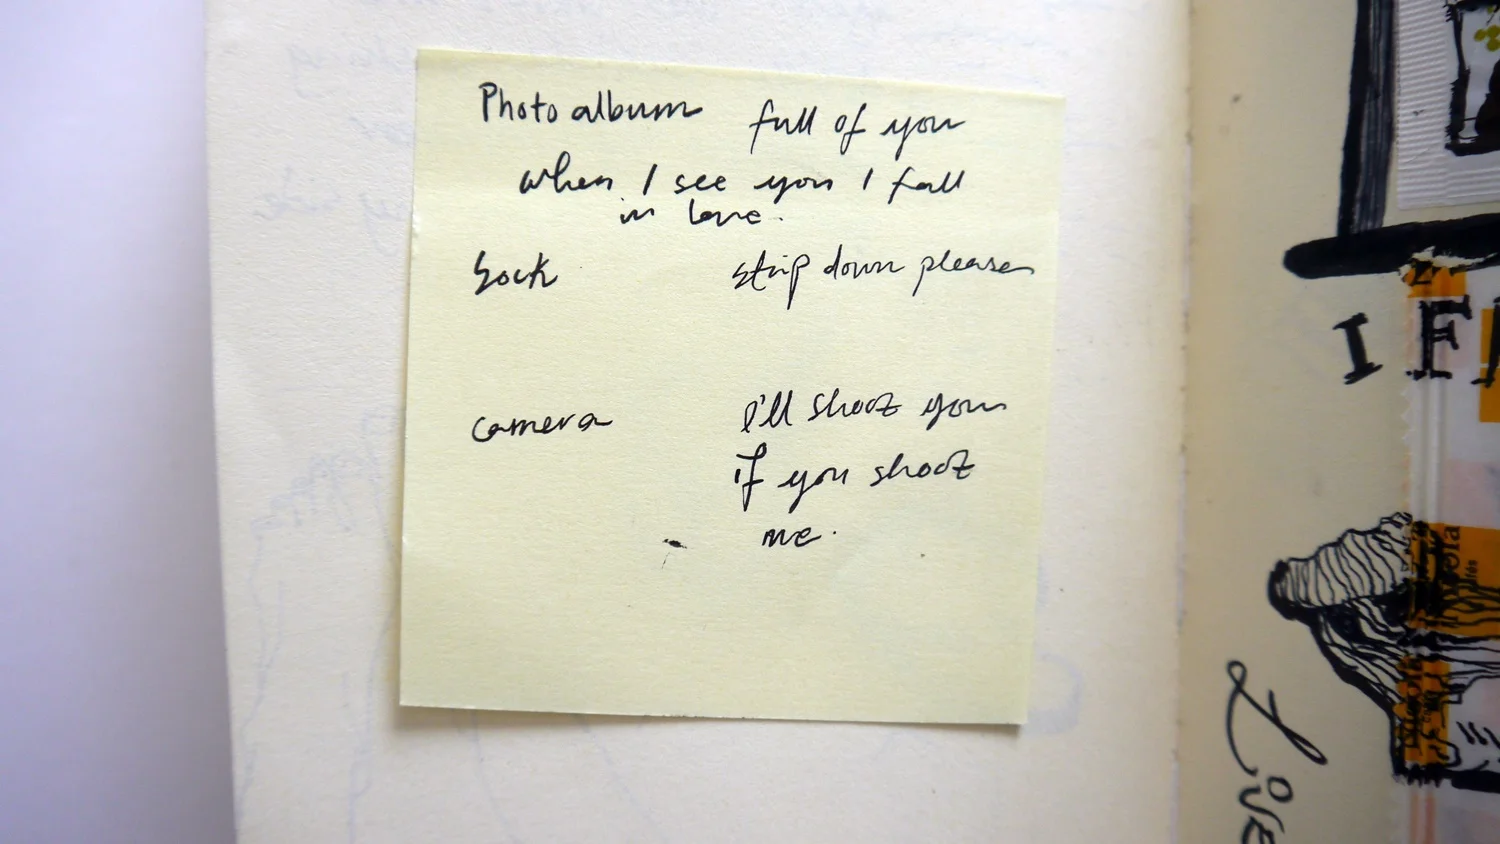 Photo album full of you
when I see you I fall
in love.
Sock strip down please
camera I'll shoot you
if you shoot
me.
I F
Live